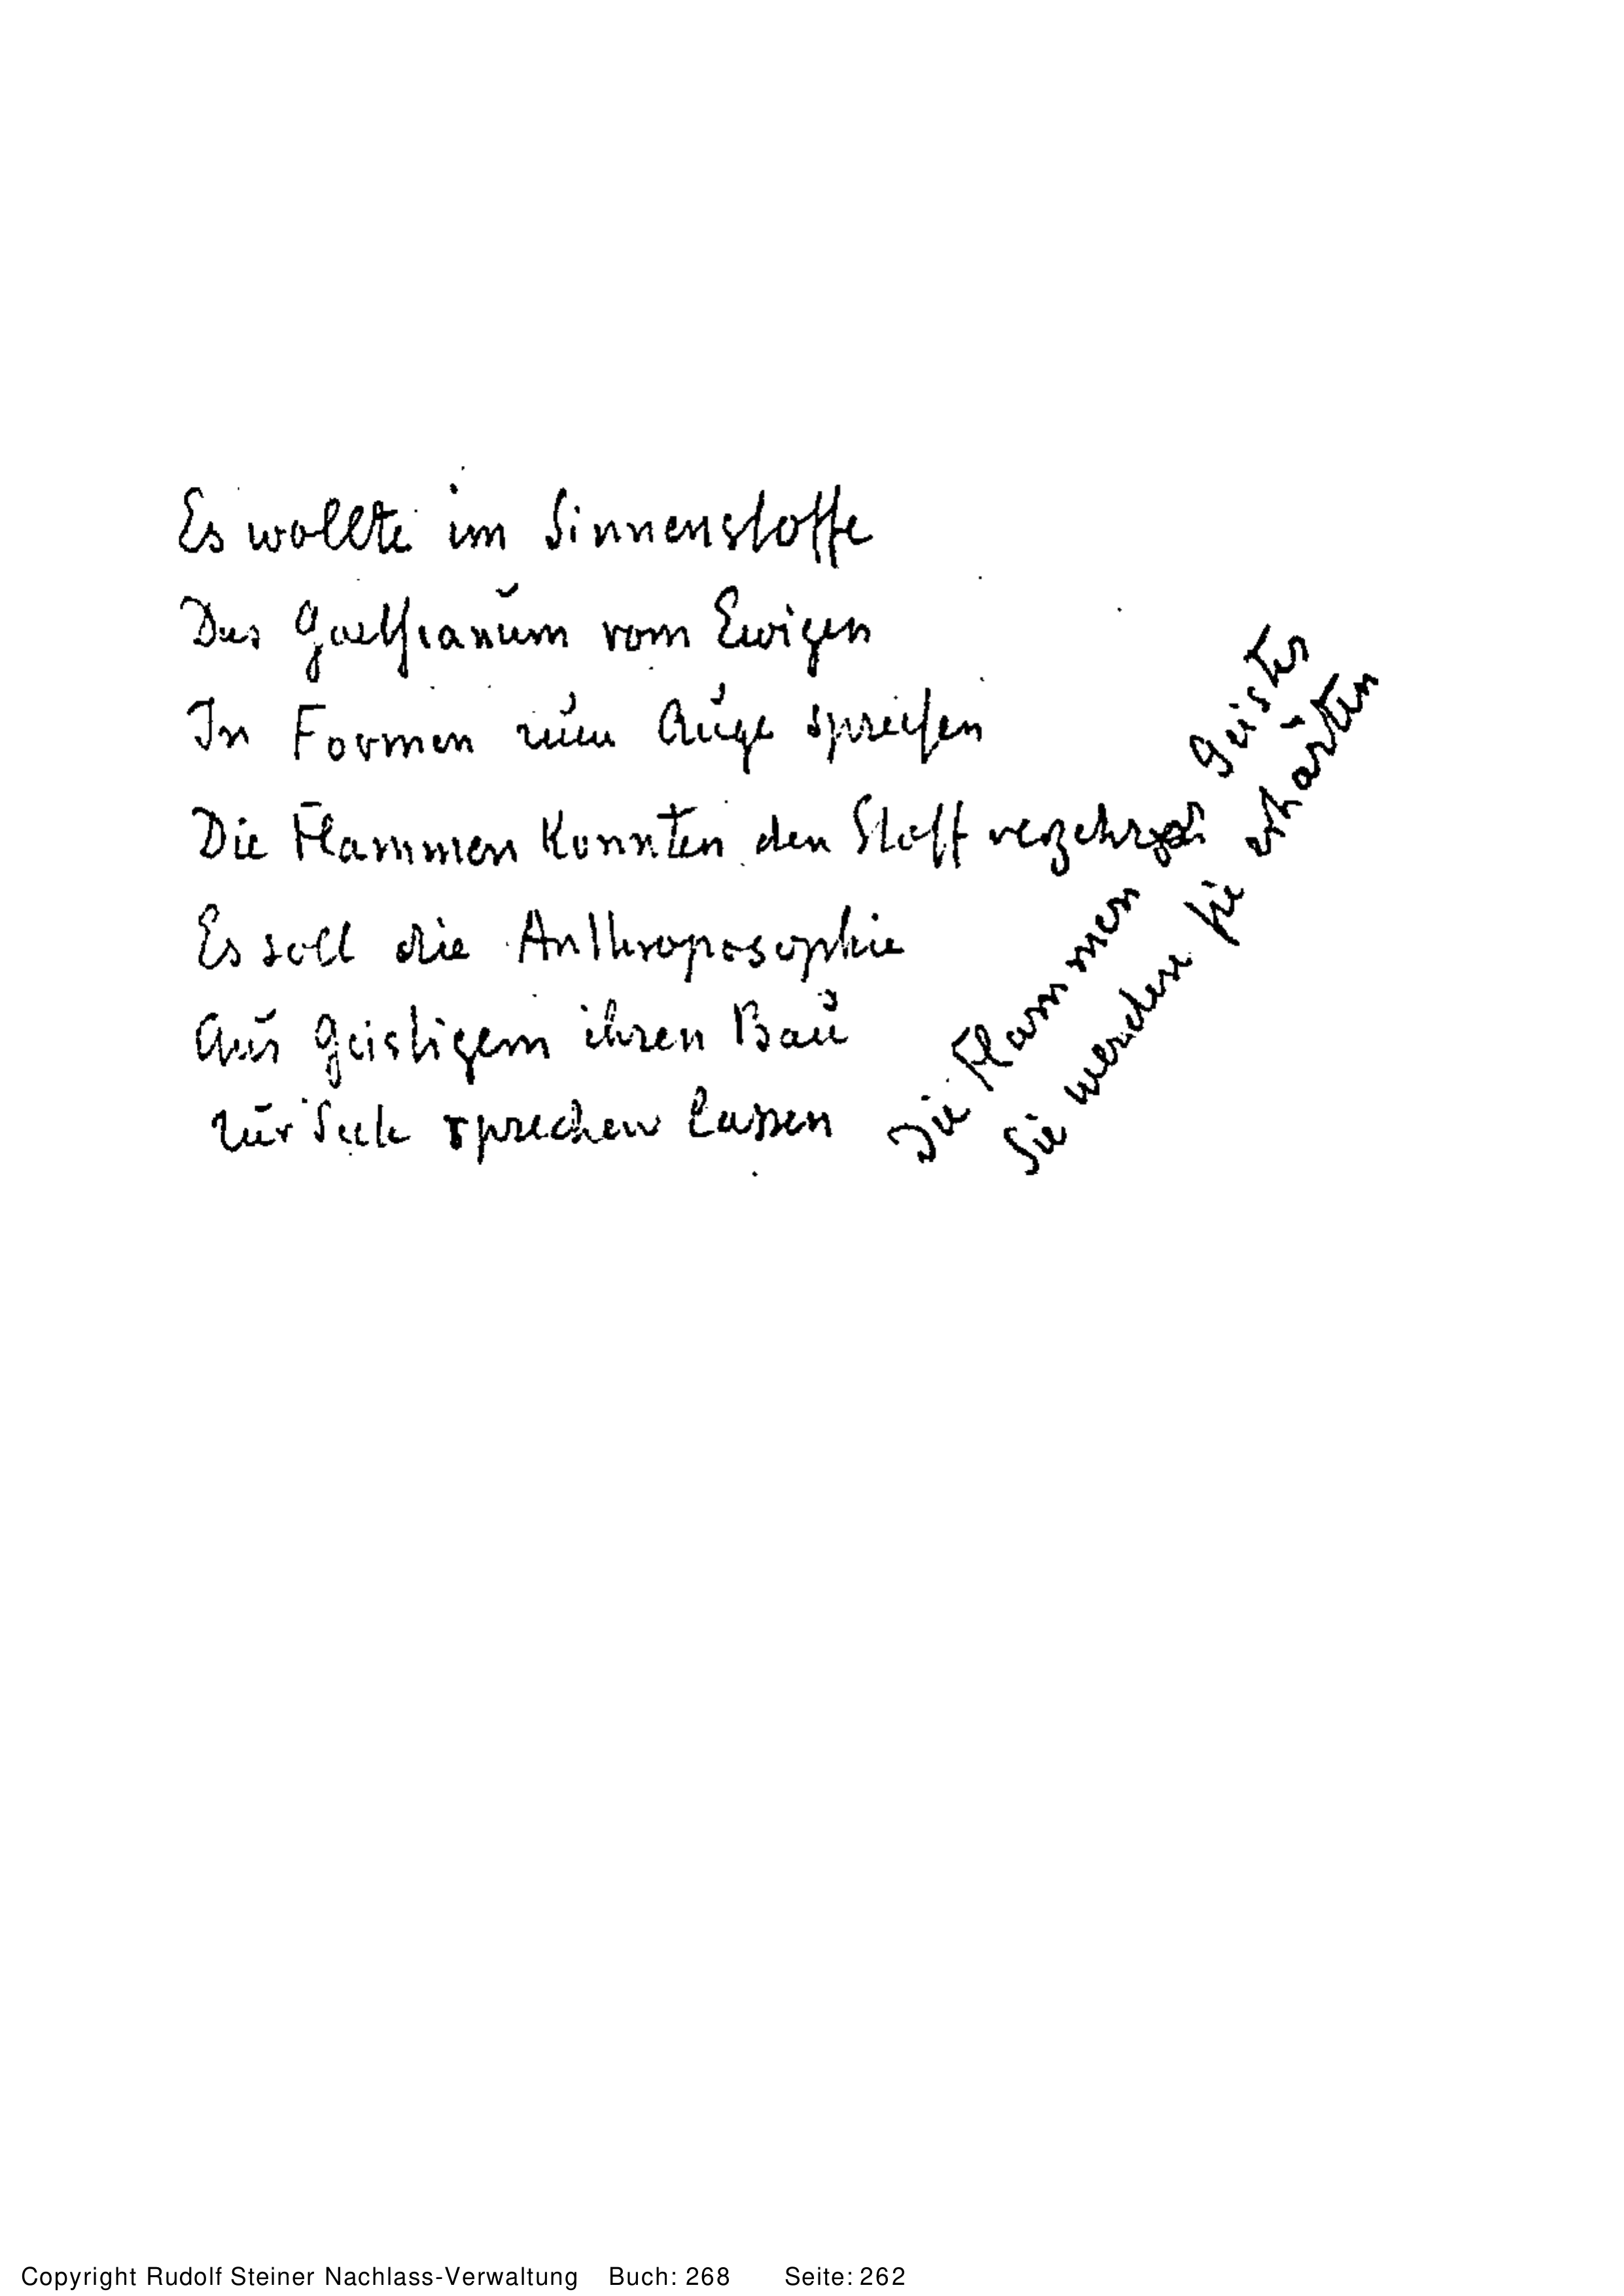 Es wollte im Sinnenstoffe
Das Goetheanum vom Ewigen
In Formen zum Auge sprechen
Die Flammen konnten den Stoff verzehren
Es soll die Anthroposophie
Aus Geistigem ihren Bau
Zur Seele sprechen lassen
Die Flammen des Geistes
Sie werden sie erhärten
Copyright Rudolf Steiner Nachlass-Verwaltung Buch: 268 Seite: 262